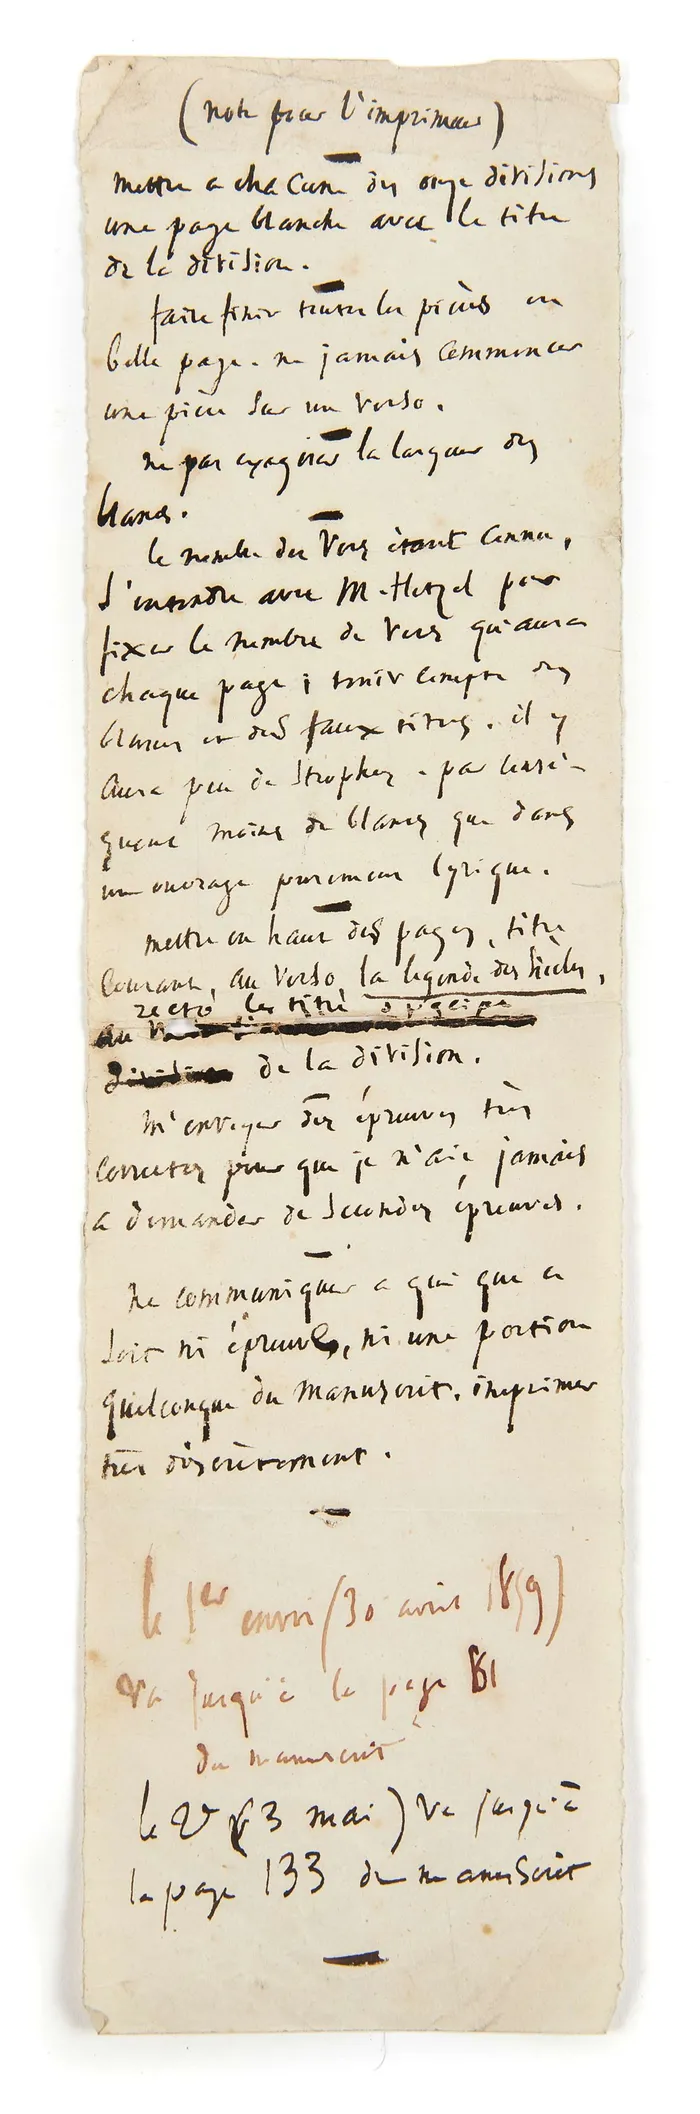 (note pour l'imprimeur)
mettre a chacune des onze divisions
une page blanche avec le titre
de la division.
faire finir toutes les pièces en
belle page. ne jamais commencer
une pièce sur un verso.
ne pas exagérer la largeur des
blancs.
le nombre des vers étant connu,
s'entendre avec M. Hetzel pour
fixer le nombre de vers qu'aura
chaque page ; tenir compte des
blancs et des faux titres. il y
aura peu de strophes. par consé-
quent moins de blancs que dans
un ouvrage purement lyrique.
mettre en haut des pages, titre
courant, au verso, la légende des siècles,
recto les titre
au
de la division.
m'envoyer des épreuves très
correctes pour que je n'aie jamais
a demander de secondes épreuves.
ne communiquer a qui que ce
soit ni épreuves, ni une portion
quelconque du manuscrit. imprimer
très discrètement.
le 1er envoi (30 avril 1859)
va jusqu'à la page 81
du manuscrit
le 2e (3 mai) va jusqu'à
la page 133 du manuscrit